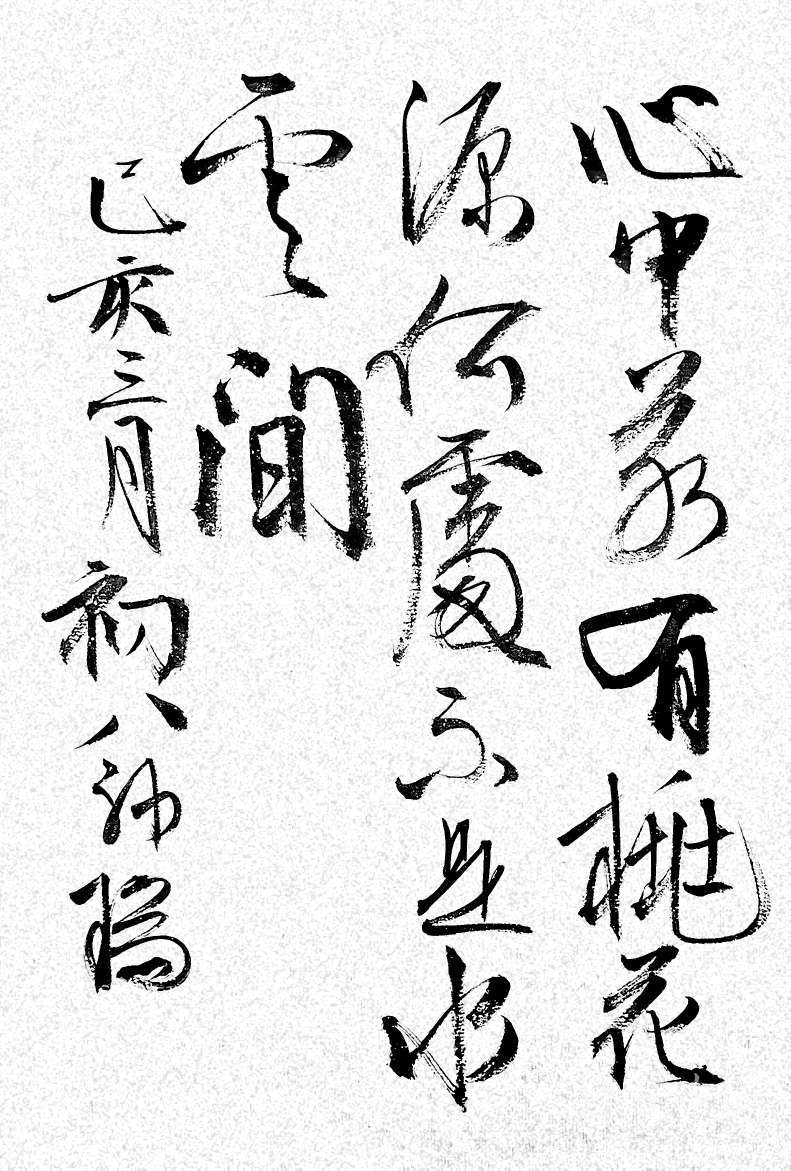 心中若有桃花
源何處不是水
雲間
己亥三月初八